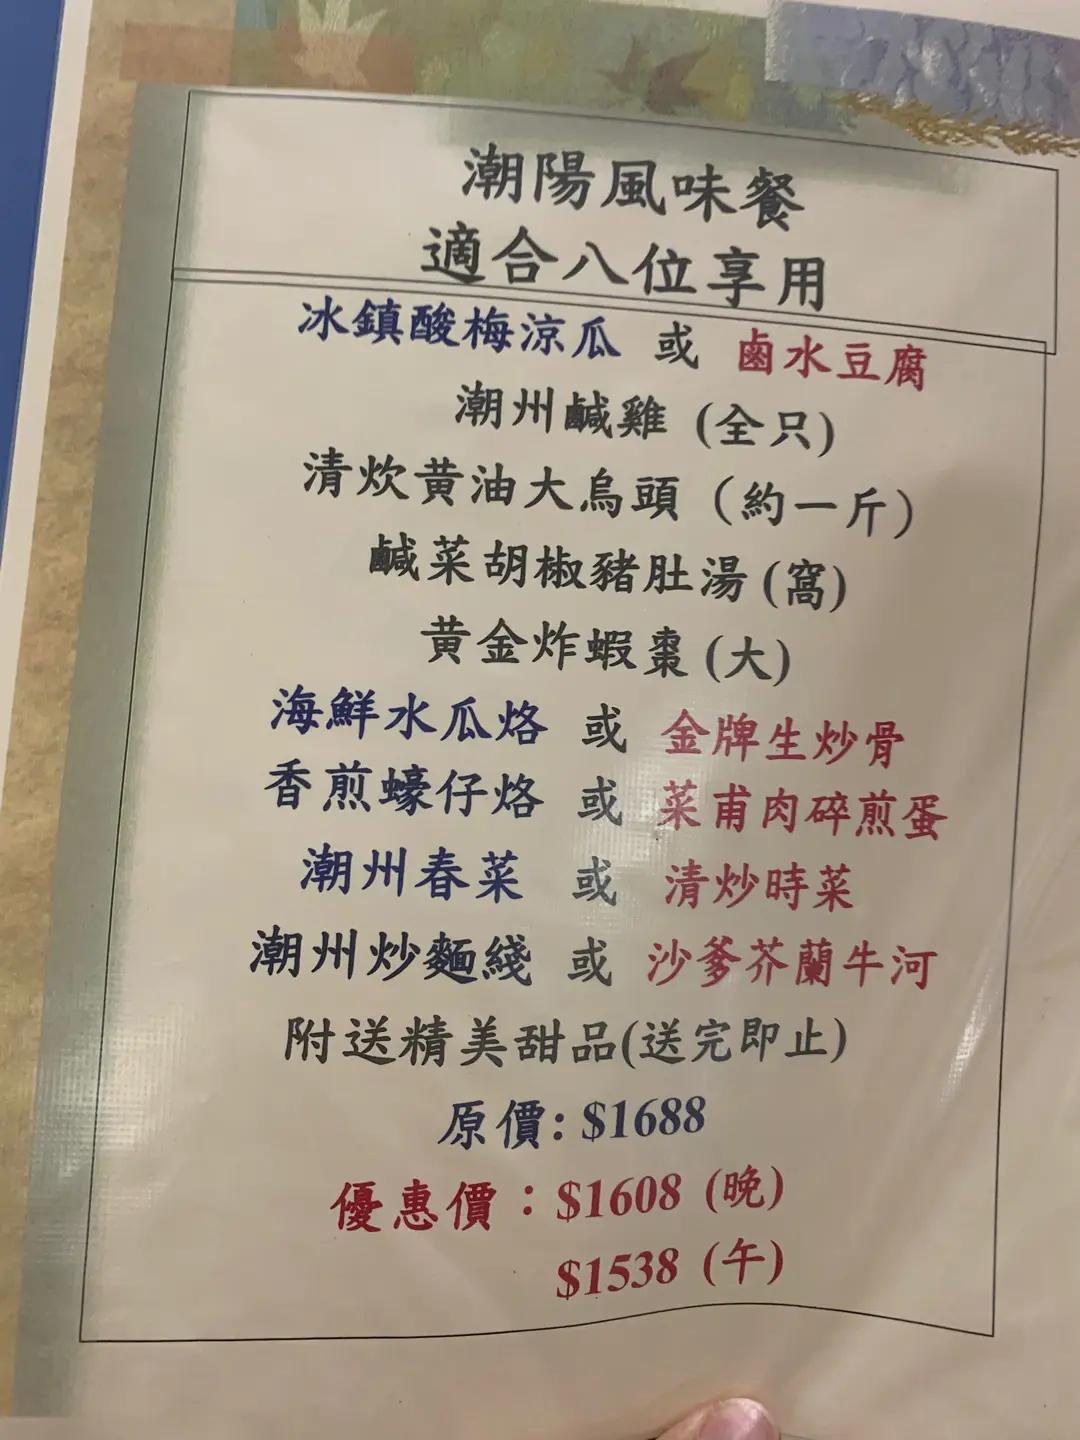 潮陽風味餐
適合八位享用
冰鎮酸梅涼瓜 或 鹵水豆腐
潮州鹹雞 (全只)
清炊黄油大烏頭 (約一斤)
鹹菜胡椒豬肚湯 (窩)
黄金炸蝦棗 (大)
海鮮水瓜烙 或 金牌生炒骨
香煎蠔仔烙 或 菜甫肉碎煎蛋
潮州春菜 或 清炒時菜
潮州炒麵綫 或 沙爹芥蘭牛河
附送精美甜品(送完即止)
原價: $1688
優惠價：$1608 (晚)
$1538 (午)